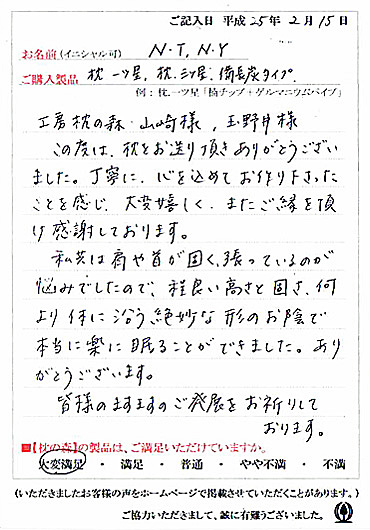 ご記入日 平成25年2月15日
お名前(イニシャル可) N・T, N・Y
ご購入製品 枕 一ツ星, 枕 三ツ星, 備長炭タイプ
例:枕.一ツ星「楠チップ+ゲルマニウムパイプ」
工房枕の森・山崎様, 玉野井様
この度は、枕をお送り頂きありがとうござい
ました。丁寧に、心を込めてお作り下さった
ことを感じ、大変嬉しく、またご縁を頂
け感謝しております。
私共は肩や首が固く、張っているのが
悩みでしたので、程良い高さと固さ、何
より体に沿う絶妙な形のお陰で
本当に楽に眠ることができました。あり
がとうございます。
皆様のますますのご発展をお祈りして
おります。
■【枕の森】の製品は、ご満足いただけていますか。
大変満足 ・ 満足 ・ 普通 ・ やや不満 ・ 不満
(いただきましたお客様の声をホームページで掲載させていただくことがあります。)
ご協力いただきまして、誠に有難うございました。